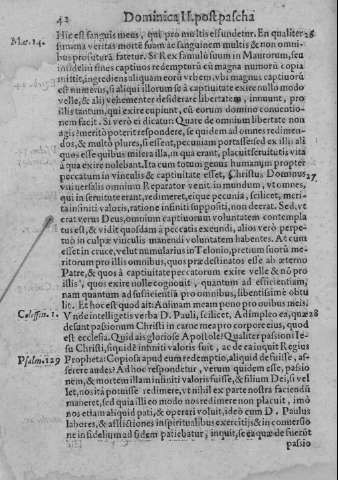 42 Dominica II. post pascha
Mat. 14. Hic est sanguis meus, qui pro multis effundetur. En qualiter 26
summa veritas morte suam ac sanguinem multis & non omni-
bus profutura fatetur. Si Rex familiosum in Maurorum, seu
infidelium fines captivos redempturũ cũ magna numorũ copia
mittit, ingrediens aliquam eorũ vrbem, vbi magnus captivorũ
est numerus, si aliqui illorum se à captivitate exire nollo modo
velle, & alij vehementer desiderare libertatem, innuunt, pro
illis tantum, qui exire cupiunt, cũ eorum domino conventio-
nem facit. Si verò ei dicatur: Quare de omnium libertate non
agis? meritò poterit respondere, se quidem ad omnes redimen-
dos, & multò plures, si essent, pecuniam portasse sed ex illi ali
quos esse quibus misera illa, in qua erant, placuit servitutis vita
à qua exire nolebant. Ita cum totum genus humanum propter
peccatum in vinculis & captivitate esset, Christus Dominus 27
vniversalis omnium Reparator venit in mundum, vt omnes,
qui in servitute erant, redimeret, eique pecunia, scilicet, meri-
ta infiniti valoris, ratione infiniti suppositi, non deerat. Sed, vt
erat verus Deus, omnium captivorum voluntatem contempla
tus est, & vidit quosdam à peccatis exeundi, alios verò perpe-
tuò in culpæ vinculis manendi voluntatem habentes. At cum
esset in cruce, velut numularius in Telonio, pretium suorũ me-
ritorum pro illis omnibus, quos prædestinatos esse ab æterno
Patre, & quos à captivitate peccatorum exire velle & nõ pro
illis, quos exire nolle cognouit, quantum ad efficientiam,
nam quantum ad sufficientiã pro omnibus, libentissimè obtu
lit. Et hoc est quod ait: Animam meam pono pro ovibus meis.
Coloss. 1. Vnde intelligetis verba D. Pauli, scilicet, Adimpleo ea, quæ 28
desunt passionum Christi in carne mea pro corpore eius, quod
est ecclesia. Quid ais gloriose Apostole? Qualiter passioni Ie-
su Christi, siquidẽ infiniti valoris fuit, ac de ea inquit Regius
Psalm. 129 Propheta: Copiosa apud eum redemptio, aliquid defuisse, as-
serere audes? Ad hoc respondetur, verum quidem esse, passio
nem, & mortem illam infiniti valoris fuisse, & filium Dei, si vel
let, nos ita potuisse redimere, vt nihil ex parte nostra faciendũ
maneret, sed quia illi eo modo nos redimere non placuit, imò
nos etiam aliquid pati, & operari voluit, ideò cum D. Paulus
labores, & afflictiones in spiritualibus exercitijs & in conversio
ne infidelium ad fidem patiebatur, inquit, se ea quæ de fuerũt
passio